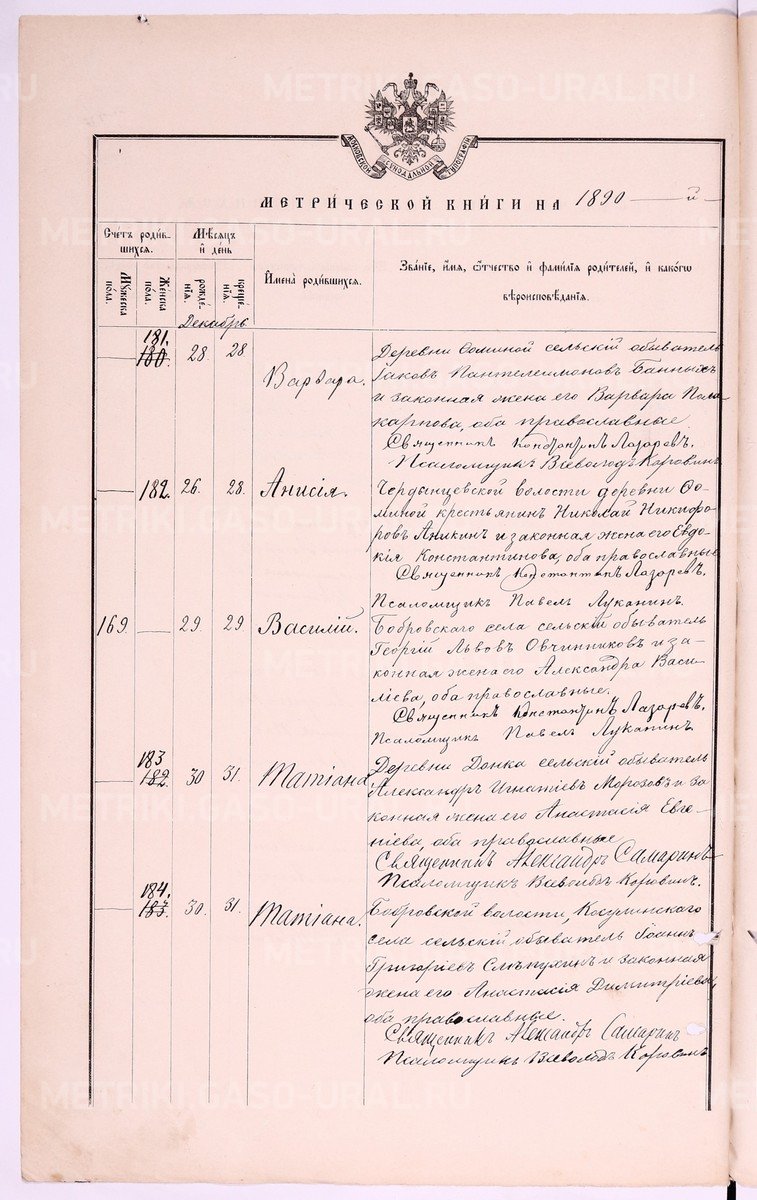 METRIKI.GASO-URAL.RU
МОСКОВСКОЙ СѴНОДАЛЬНОЙ ТИПОГРАФІИ
МЕТРИ́ЧЕСКОЙ КНИ́ГИ НА 1890 — й —
Сче́тъ роди́в-
шихся.
Мꙋ́жеска по́ла.
Же́нска по́ла.
Мѣ́сяцъ
и҆ де́нь
рожде́-
нїѧ.
креще́-
нїѧ.
И҆мена̀ роди́вшихся.
Зва́нїе, и҆́мѧ, ѻ҆́тчество и҆ фами́лїѧ роди́телей, и҆ како́гѡ
вѣроисповѣ́данїѧ.
Декабрь
181.
180.
28
28
Варвара.
Деревни Фоминой сельскій обыватель
Іаковъ Пантелеимоновъ Банныхъ
и законная жена его Варвара Поли-
карпова, оба православные.
Священникъ Константинъ Лазаревъ.
Псаломщикъ Всеволодъ Коровинъ
182.
26.
28.
Анисія.
Чердынцевской волости деревни Фо-
миной крестьянинъ Николай Никифо-
ровъ Аникинъ и законная жена его Евдо-
кія Константинова, оба православные
Священникъ Константинъ Лазаревъ.
Псаломщикъ Павелъ Луканинъ.
169.
29.
29.
Василій.
Бобровскаго села сельскій обыватель
Георгій Львовъ Овчинниковъ и за-
конная жена его Александра Васи-
ліева, оба православные.
Священникъ Константинъ Лазаревъ.
Псаломщикъ Павелъ Луканинъ.
183
182.
30
31.
Татіана
Деревни Донка сельскій обыватель
Александръ Игнатіевъ Морозовъ и за-
конная жена его Анастасія Евге-
ніева, оба православные
Священникъ Александръ Самаринъ
Псаломщикъ Всеволодъ Коровинъ.
184.
183.
30.
31.
Татіана.
Бобровской волости, Косулинскаго
села сельскій обыватель Іоаннъ
Григоріевъ Слѣпухинъ и законная
жена его Анастасія Димитріева,
оба православные.
Священникъ Александръ Самаринъ
Псаломщикъ Всеволодъ Коровинъ